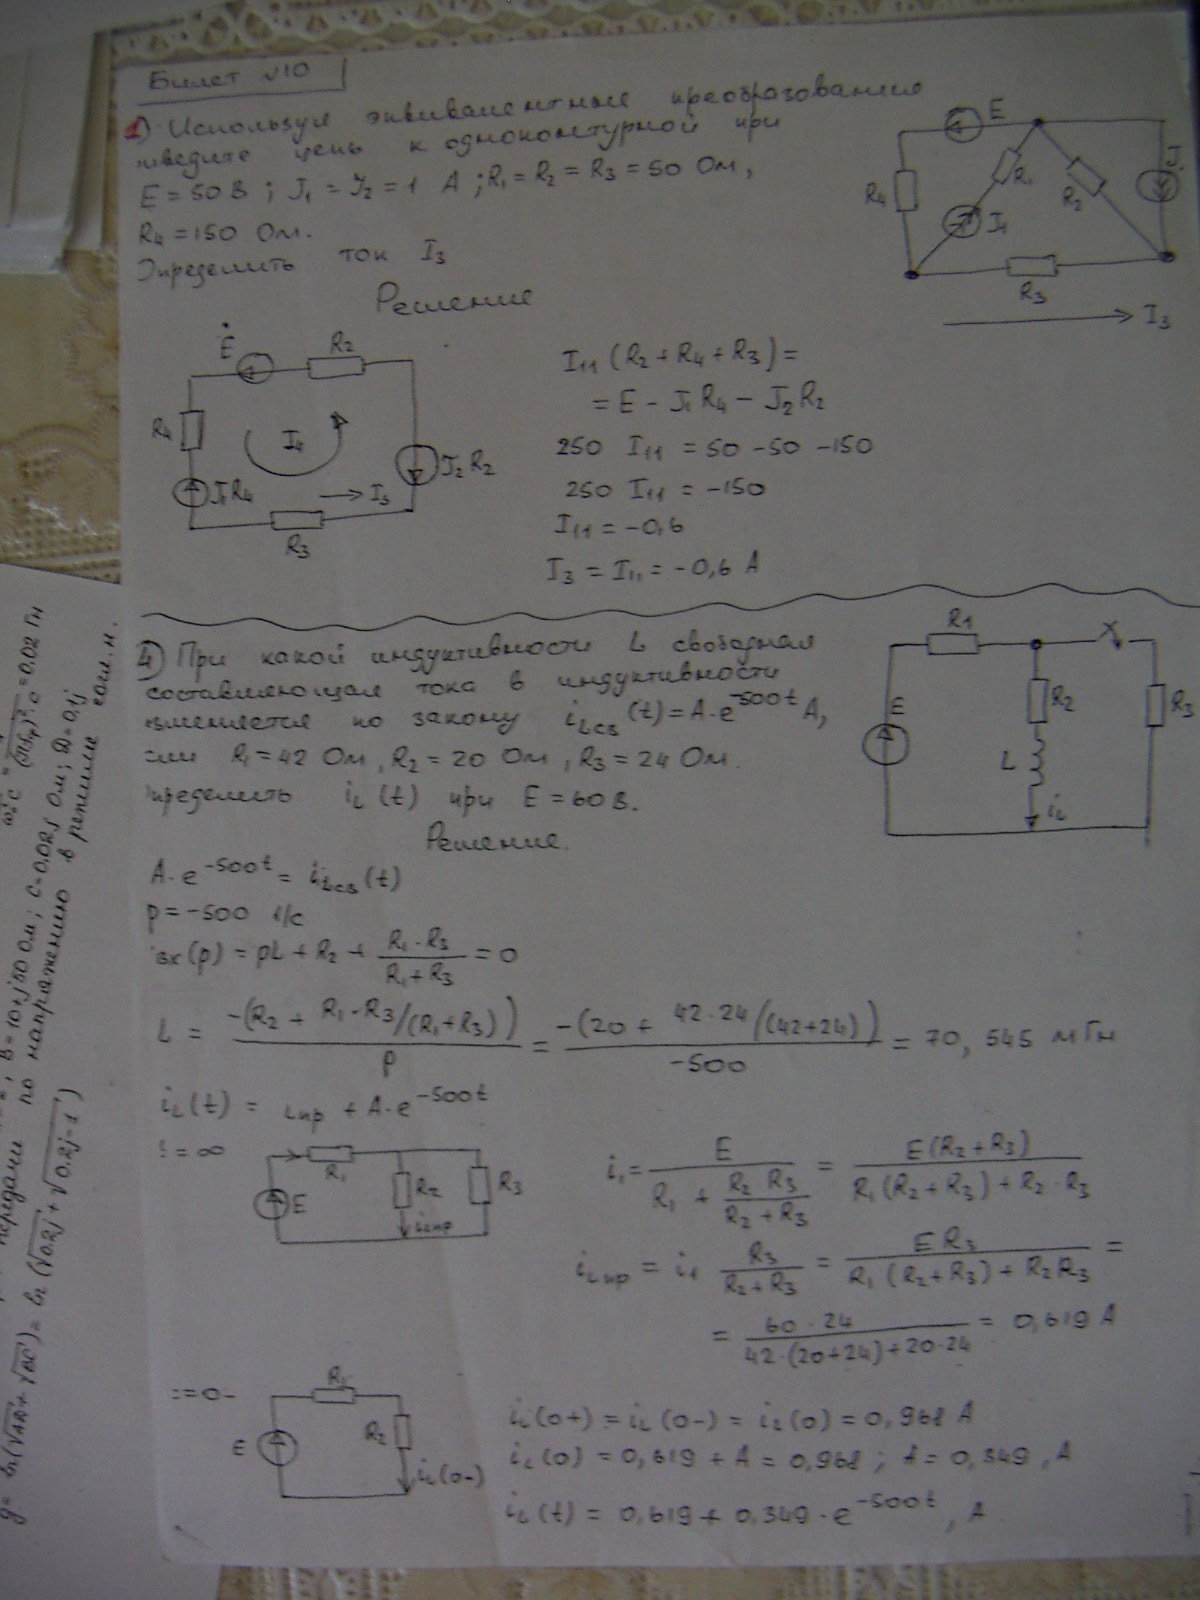 Билет №10
1) Используя эквивалентные преобразования
приведите цепь к одноконтурной при
E = 50 В ; J₁ = J₂ = 1 А ; R₁ = R₂ = R₃ = 50 Ом,
R₄ = 150 Ом.
Определить ток I₃
E
R₁
R₂
J
R₄
J₁
R₃
I₃
Решение
E
R₂
R₄
I₄
J₂R₂
J₁R₄
I₃
R₃
I₁₁ (R₂ + R₄ + R₃) =
= E - J₁R₄ - J₂R₂
250 I₁₁ = 50 - 50 - 150
250 I₁₁ = -150
I₁₁ = -0,6
I₃ = I₁₁ = -0,6 А
4) При какой индуктивности L свободная
составляющая тока в индуктивности
изменяется по закону iLсв(t) = A·e^-500t А,
если R₁ = 42 Ом, R₂ = 20 Ом, R₃ = 24 Ом.
Определить iL(t) при E = 60 В.
R₁
E
R₂
R₃
L
iL
Решение.
A·e^-500t = iLсв(t)
p = -500 1/с
вх(p) = pL + R₂ + R₁·R₃/(R₁+R₃) = 0
L = -(R₂ + R₁·R₃/(R₁+R₃))/p = -(20 + 42·24/(42+24))/-500 = 70,545 мГн
iL(t) = Lпр + A·e^-500t
t = ∞
R₁
E
R₂
R₃
iLпр
i₁ = E/(R₁ + R₂R₃/(R₂+R₃)) = E(R₂+R₃)/(R₁(R₂+R₃) + R₂·R₃)
iLпр = i₁ R₃/(R₂+R₃) = ER₃/(R₁(R₂+R₃) + R₂R₃) =
= 60·24/(42·(20+24)+20·24) = 0,619 А
t=0-
R₁
E
R₂
iL(0-)
iL(0+) = iL(0-) = iL(0) = 0,968 А
iL(0) = 0,619 + A = 0,968 ; A = 0,349, А
iL(t) = 0,619 + 0,349·e^-500t, А
B = 10+j50 Ом; C = 0.02j Ом; D = 0,1j
по напряжению в режиме согл. н.
g = ln(√AD + √BC) = ln(√0.2j + √0.2j-1)